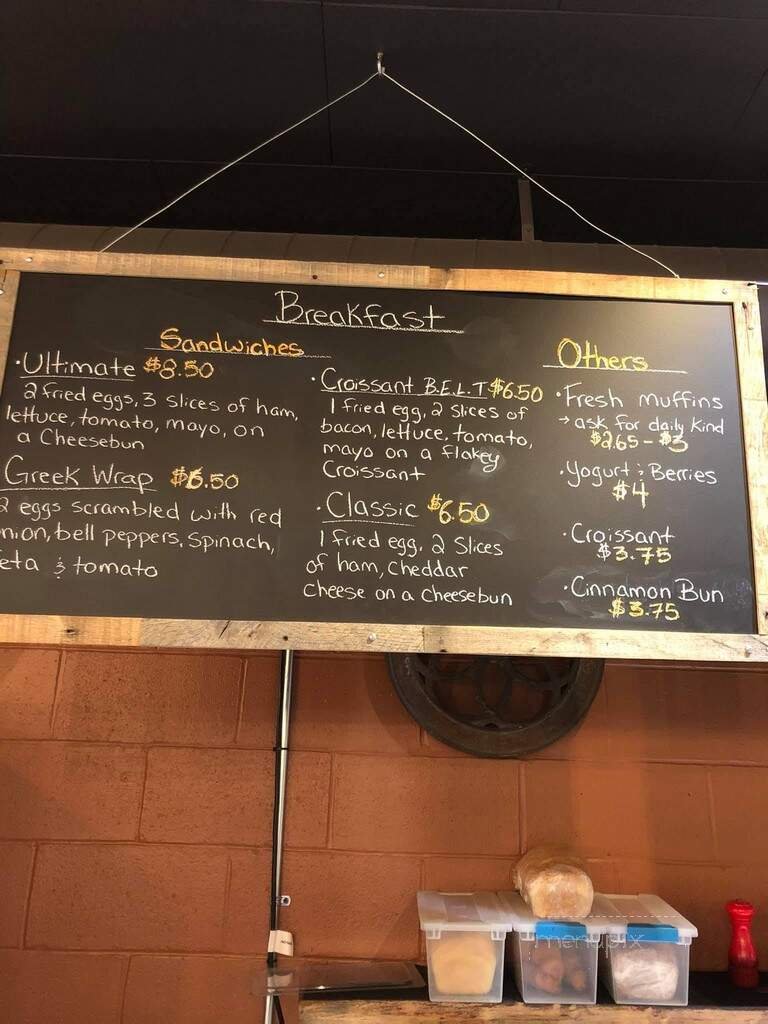 Breakfast
Sandwiches
·Ultimate $8.50
2 fried eggs, 3 slices of ham,
lettuce, tomato, mayo, on
a Cheesebun
Greek Wrap $6.50
2 eggs scrambled with red
nion, bell peppers, spinach,
eta & tomato
·Croissant B.E.L.T $6.50
1 fried egg, 2 slices of
bacon, lettuce, tomato,
mayo on a flakey
Croissant
·Classic $6.50
1 fried egg, 2 Slices
of ham, cheddar
cheese on a cheesebun
Others
·Fresh muffins
→ ask for daily kind
$2.65 - $3
·Yogurt & Berries
$4
·Croissant
$3.75
·Cinnamon Bun
$3.75
menupix